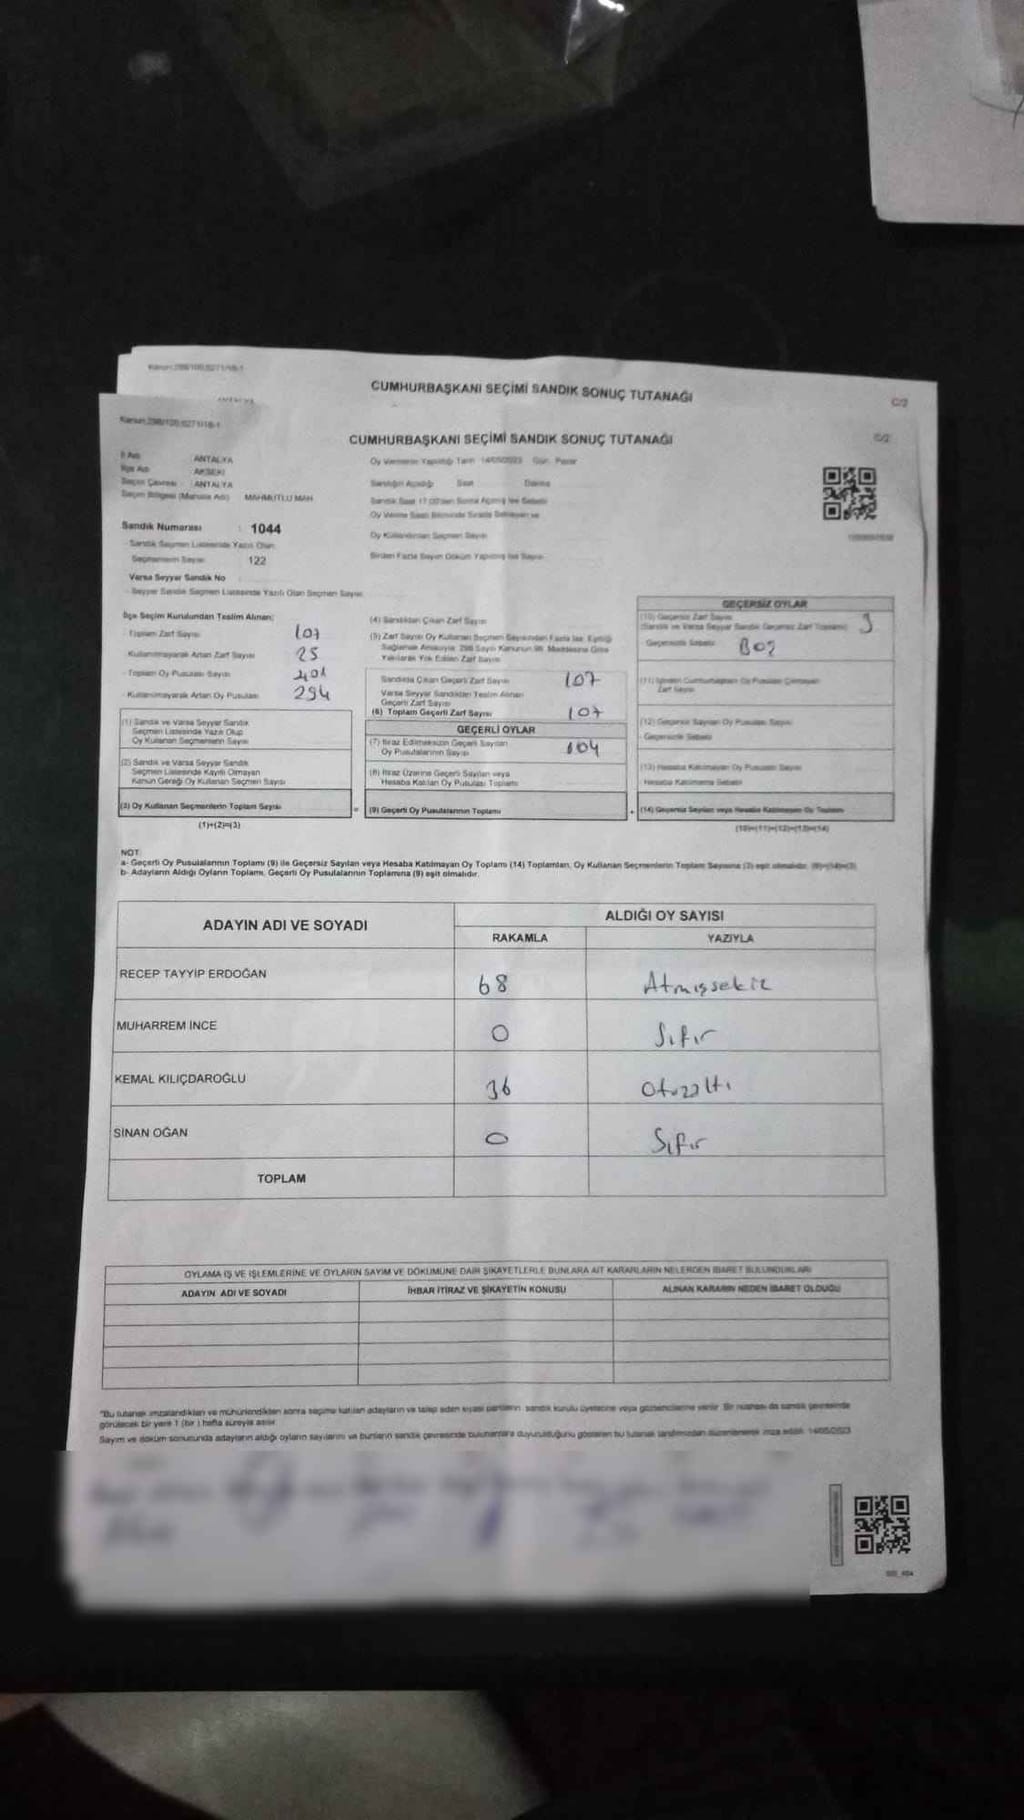 CUMHURBAŞKANI SEÇİMİ SANDIK SONUÇ TUTANAĞI
C/2
CUMHURBAŞKANI SEÇİMİ SANDIK SONUÇ TUTANAĞI
C/2
İl Adı : ANTALYA
İlçe Adı : AKSEKİ
Seçim Çevresi : ANTALYA
Seçim Bölgesi (Mahalle Adı) MAHMUTLU MAH
Oy Vermenin Yapıldığı Tarih 14/05/2023 Gün Pazar
Sandığın Açıldığı Saat Dakika
Oy Kullandırılan Seçmen Sayısı
Sandık Numarası : 1044
Sandık Seçmen Listesinde Yazılı Olan
Seçmenlerin Sayısı : 122
Varsa Seyyar Sandık No
Seyyar Sandık Seçmen Listesinde Yazılı Olan Seçmen Sayısı
İlçe Seçim Kurulundan Teslim Alınan:
Toplam Zarf Sayısı 107
Kullanılmayarak Artan Zarf Sayısı 25
Toplam Oy Pusulası Sayısı 401
Kullanılmayarak Artan Oy Pusulası 294
(1) Sandık ve Varsa Seyyar Sandık
Seçmen Listesinde Yazılı Olup
Oy Kullanan Seçmenlerin Sayısı
(2) Sandık ve Varsa Seyyar Sandık
Seçmen Listesinde Kayıtlı Olmayan
Kanun Gereği Oy Kullanan Seçmen Sayısı
(3) Oy Kullanan Seçmenlerin Toplam Sayısı
(1)+(2)=(3)
(4) Sandıktan Çıkan Zarf Sayısı
(5) Zarf Sayısı Oy Kullanan Seçmen Sayısından Fazla İse, Eşitliği
Sağlamak Amacıyla 298 Sayılı Kanunun 98. Maddesine Göre
Yakılarak Yok Edilen Zarf Sayısı
Sandıkta Çıkan Geçerli Zarf Sayısı 107
Varsa Seyyar Sandıktan Teslim Alınan
Geçerli Zarf Sayısı
(6) Toplam Geçerli Zarf Sayısı 107
GEÇERLİ OYLAR
(7) İtiraz Edilmeksizin Geçerli Sayılan
Oy Pusulalarının Sayısı 104
(8) İtiraz Üzerine Geçerli Sayılan veya
Hesaba Katılan Oy Pusulası Toplamı
=
(9) Geçerli Oy Pusulalarının Toplamı
GEÇERSİZ OYLAR
(10) Geçersiz Zarf Sayısı
(Sandık ve Varsa Seyyar Sandık Geçersiz Zarf Toplamı) 3
Geçersizlik Sebebi Boş
Zarf Sayısı
Geçersizlik Sebebi
(13) Hesaba Katılmayan Oy Pusulası Sayısı
Hesaba Katılmama Sebebi
(14) Geçersiz Sayılan veya Hesaba Katılmayan Oy Toplamı
(10)+(11)+(12)+(13)=(14)
NOT:
a- Geçerli Oy Pusulalarının Toplamı (9) ile Geçersiz Sayılan veya Hesaba Katılmayan Oy Toplamı (14) Toplamları, Oy Kullanan Seçmenlerin Toplam Sayısına (3) eşit olmalıdır. (9)+(14)=(3)
b- Adayların Aldığı Oyların Toplamı, Geçerli Oy Pusulalarının Toplamına (9) eşit olmalıdır.
ADAYIN ADI VE SOYADI
ALDIĞI OY SAYISI
RAKAMLA YAZIYLA
RECEP TAYYİP ERDOĞAN 68 Atmışsekiz
MUHARREM İNCE 0 Sıfır
KEMAL KILIÇDAROĞLU 36 Otuzaltı
SİNAN OĞAN 0 Sıfır
TOPLAM
OYLAMA İŞ VE İŞLEMLERİNE VE OYLARIN SAYIM VE DÖKÜMÜNE DAİR ŞİKAYETLERLE BUNLARA AİT KARARLARIN NELERDEN İBARET BULUNDUKLARI
ADAYIN ADI VE SOYADI İHBAR İTİRAZ VE ŞİKAYETİN KONUSU ALINAN KARARIN NEDEN İBARET OLDUĞU
"Bu tutanak imzalandıktan ve mühürlendikten sonra seçime katılan adayların ve talep eden siyasi partilerin sandık kurulu üyelerine veya gözlemcilerine verilir. Bir nüshası da sandık çevresinde
görülecek bir yere 1 (bir) hafta süreyle asılır.
Sayım ve döküm sonucunda adayların aldığı oyların sayılarını ve bunların sandık çevresinde bulunanlara duyurulduğunu gösteren bu tutanak tarafımızdan düzenlenerek imza edildi. 14/05/2023